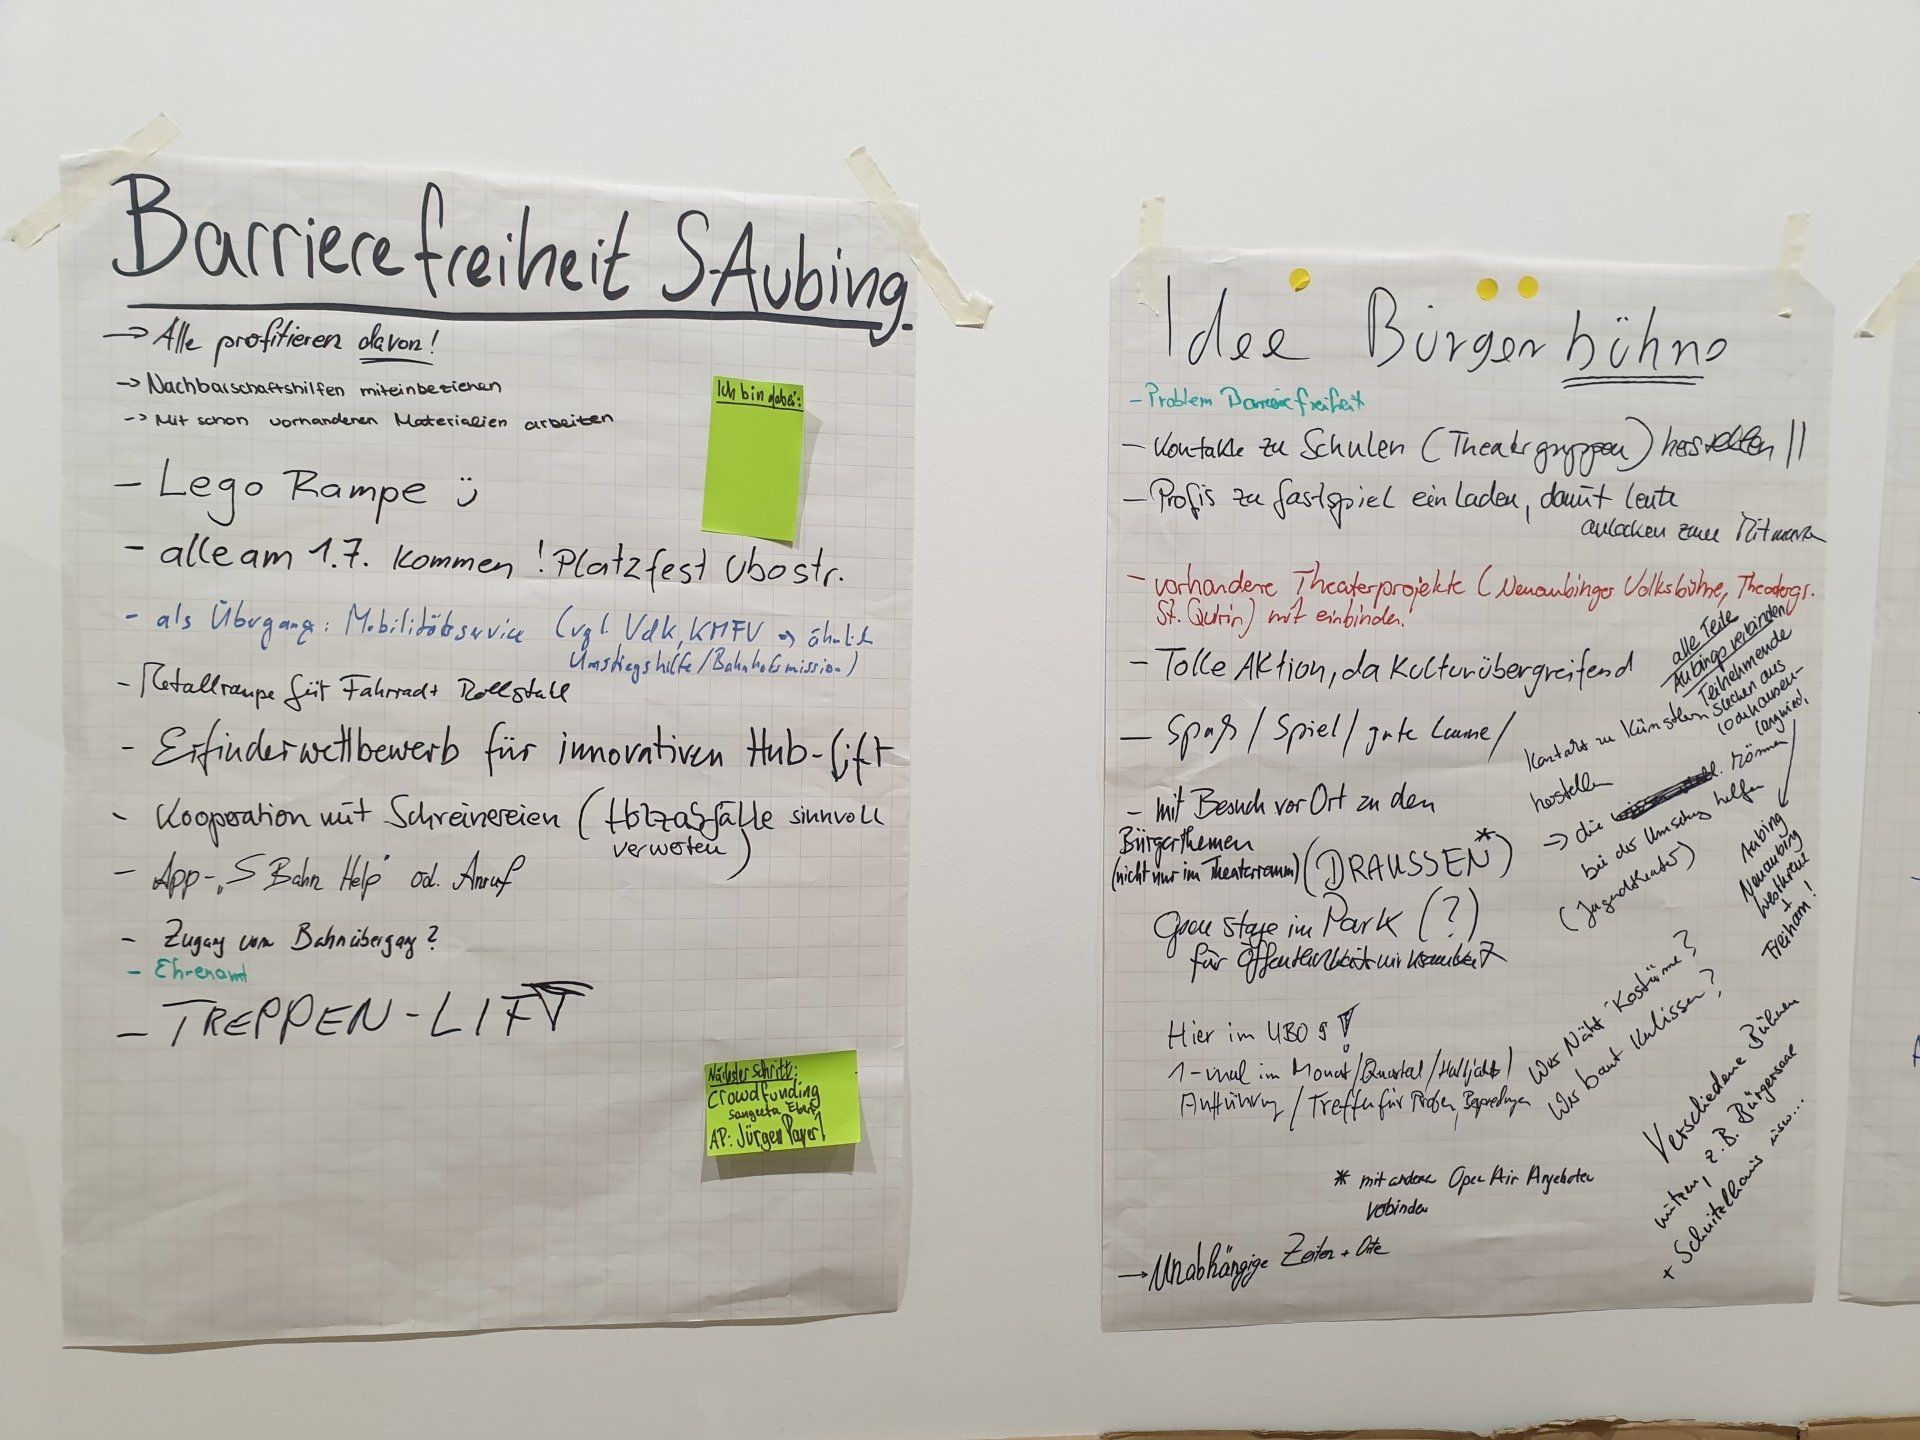 Barrierefreiheit S-Aubing
→ Alle profitieren davon!
→ Nachbarschaftshilfen miteinbeziehen
→ Mit schon vorhandenen Materialien arbeiten
Ich bin dabei:
- Lego Rampe
- alle am 1.7. kommen! Platzfest Ubostr.
- als Übergang: Mobilitätsservice (vgl. VdK, KMFV → ähnlich
Umstiegshilfe/Bahnhofsmission)
- Metallrampe für Fahrrad + Rollstuhl
- Erfinderwettbewerb für innovativen Hub-Lift
- Kooperation mit Schreinereien (Holzabfälle sinnvoll
verwerten)
- App - „S Bahn Help" od. Anruf
- Zugang vom Bahnübergang?
- Ehrenamt
- TREPPEN-LIFT
Nächster Schritt:
Crowdfunding
sangeeta
AP: Jürgen
Idee Bürgerbühne
- Problem Barrierefreiheit
- Kontakte zu Schulen (Theatergruppen) herstellen !!
- Profis zu Gastspiel einladen, damit Leute
anlocken zum Mitmachen
- vorhandene Theaterprojekte (Neuaubinger Volksbühne, Theatergr.
St. Quirin) mit einbinden.
- Tolle Aktion, da Kulturübergreifend
- Spaß / Spiel / gute Laune /
- mit Besuch vor Ort zu den
Bürgerthemen
(nicht nur im Theaterraum) (DRAUSSEN*)
Open stage im Park (?)
für Öffentlichkeitswirksamkeit
Hier im UBO 9!
1-mal im Monat/Quartal/Halbjahr/
Aufführung / Treffen für Proben, Besprechungen
* mit anderen Open Air Angeboten
verbinden
→ Unabhängige Zeiten + Orte
alle Teile
Aubings verbinden
Teilnehmende
aus
Lochhausen-
Langwied,
Aubing
Neuaubing
Westkreuz
+
Freiham!
Kontakt zu Künstlern
herstellen
→ die können
bei der Umsetzung helfen
(Jugendtheater)
Wer Näht Kostüme?
Wer baut Kulissen?
Verschiedene Bühnen
nutzen, z.B. Bürgersaal
+ usw...